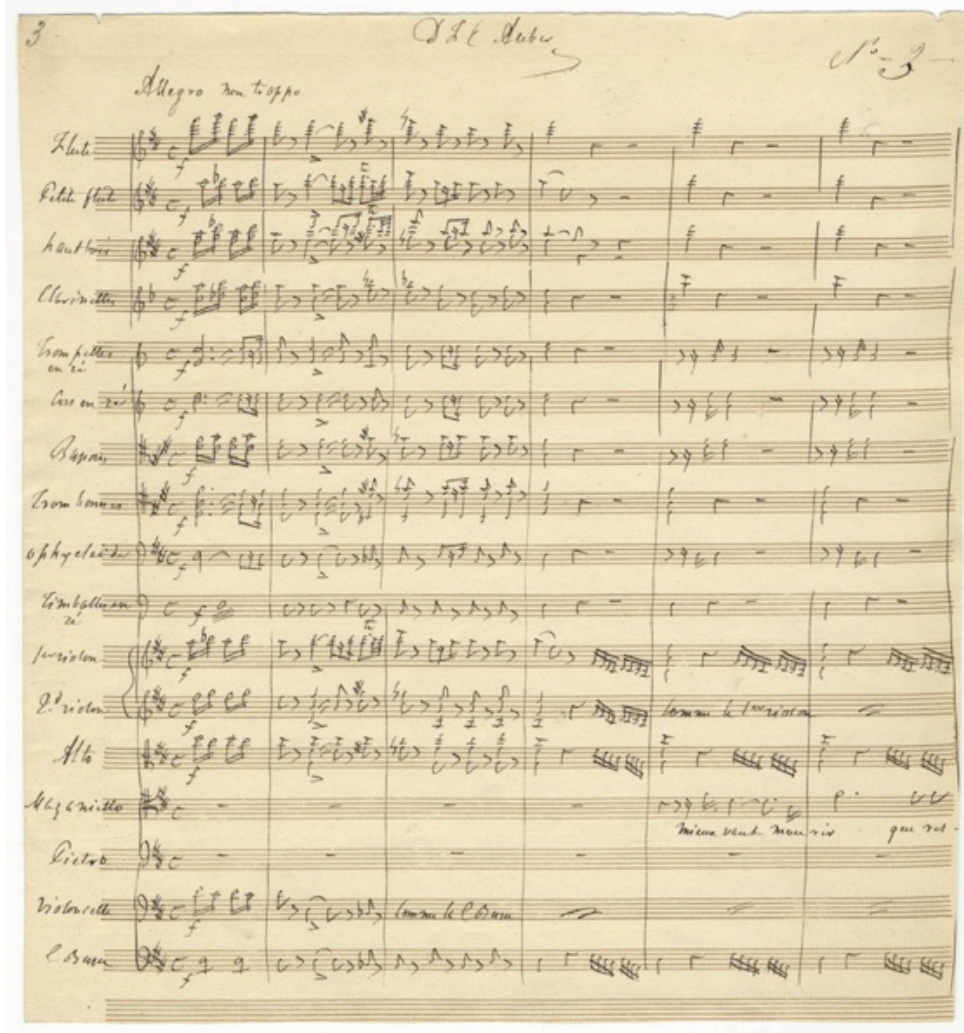 3.
D F E Auber
No - 3 -
Allegro non troppo
Flute
Petite flute
hautbois
Clarinettes
Trompettes
en ré
Cors en ré
Bassons
Trombonnes
ophycleïde
Timballes en
ré
1er violon
2.d violon
Comme le 1er violon
Alto
Mazaniello
mieux vaut mourir que res-
Pietro
violoncelle
Comme la C Basse
C Basse